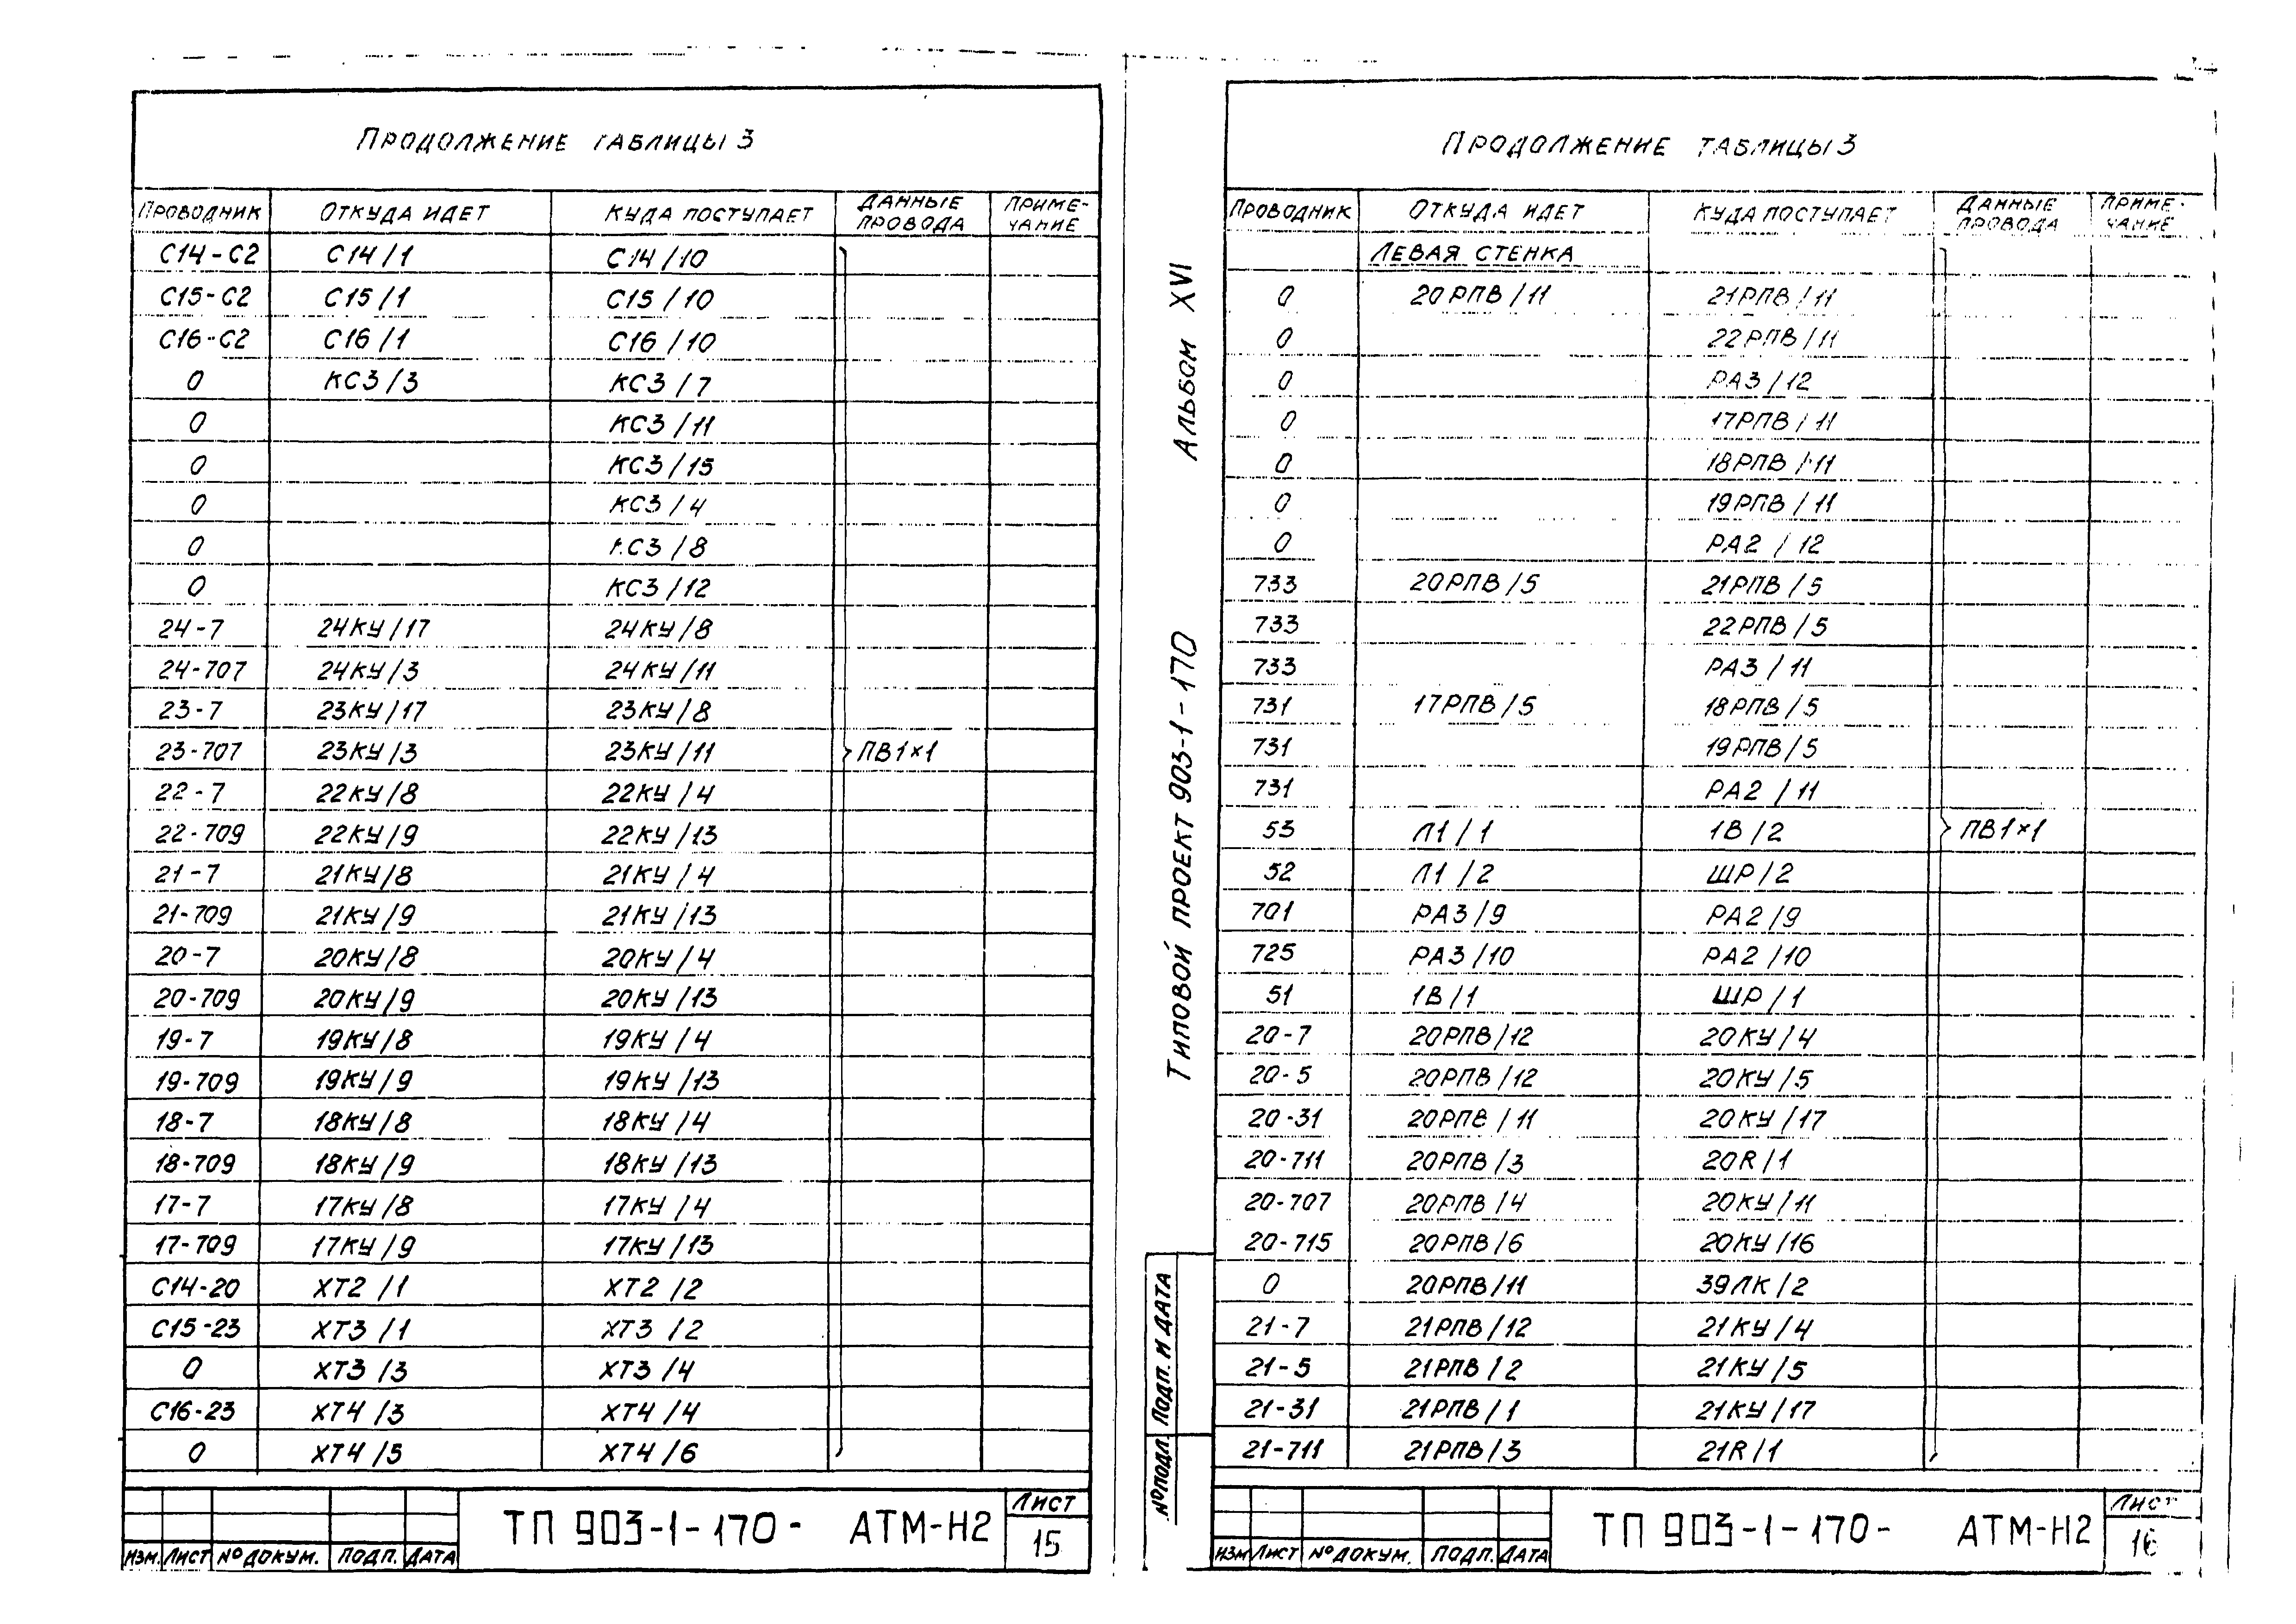 Продолжение таблицы 3
Проводник Откуда идет Куда поступает Данные провода Приме-чание
С14-С2 С14/1 С14/10
С15-С2 С15/1 С15/10
С16-С2 С16/1 С16/10
0 КС3/3 КС3/7
0 КС3/11
0 КС3/15
0 КС3/4
0 КС3/8
0 КС3/12
24-7 24КУ/17 24КУ/8
24-707 24КУ/3 24КУ/11
23-7 23КУ/17 23КУ/8
23-707 23КУ/3 23КУ/11 ПВ1×1
22-7 22КУ/8 22КУ/4
22-709 22КУ/9 22КУ/13
21-7 21КУ/8 21КУ/4
21-709 21КУ/9 21КУ/13
20-7 20КУ/8 20КУ/4
20-709 20КУ/9 20КУ/13
19-7 19КУ/8 19КУ/4
19-709 19КУ/9 19КУ/13
18-7 18КУ/8 18КУ/4
18-709 18КУ/9 18КУ/13
17-7 17КУ/8 17КУ/4
17-709 17КУ/9 17КУ/13
С14-20 ХТ2/1 ХТ2/2
С15-23 ХТ3/1 ХТ3/2
0 ХТ3/3 ХТ3/4
С16-23 ХТ4/3 ХТ4/4
0 ХТ4/5 ХТ4/6
Изм. Лист № докум. Подп. Дата
ТП 903-1-170- АТМ-Н2
Лист
15
Альбом XVI
Типовой проект 903-1-170
Подп. и дата
№ подл.
Продолжение таблицы 3
Проводник Откуда идет Куда поступает Данные провода Приме-чание
Левая стенка
0 20РПВ/11 21РПВ/11
0 22РПВ/11
0 РА3/12
0 17РПВ/11
0 18РПВ/11
0 19РПВ/11
0 РА2/12
733 20РПВ/5 21РПВ/5
733 22РПВ/5
733 РА3/11
731 17РПВ/5 18РПВ/5
731 19РПВ/5
731 РА2/11
53 Л1/1 1В/2 ПВ1×1
52 Л1/2 ШР/2
701 РА3/9 РА2/9
725 РА3/10 РА2/10
51 1В/1 ШР/1
20-7 20РПВ/12 20КУ/4
20-5 20РПВ/12 20КУ/5
20-31 20РПВ/11 20КУ/17
20-711 20РПВ/3 20R/1
20-707 20РПВ/4 20КУ/11
20-715 20РПВ/6 20КУ/16
0 20РПВ/11 39ЛК/2
21-7 21РПВ/12 21КУ/4
21-5 21РПВ/2 21КУ/5
21-31 21РПВ/1 21КУ/17
21-711 21РПВ/3 21R/1
Изм Лист № докум. Подп. Дата
ТП 903-1-170- АТМ-Н2
Лист
16